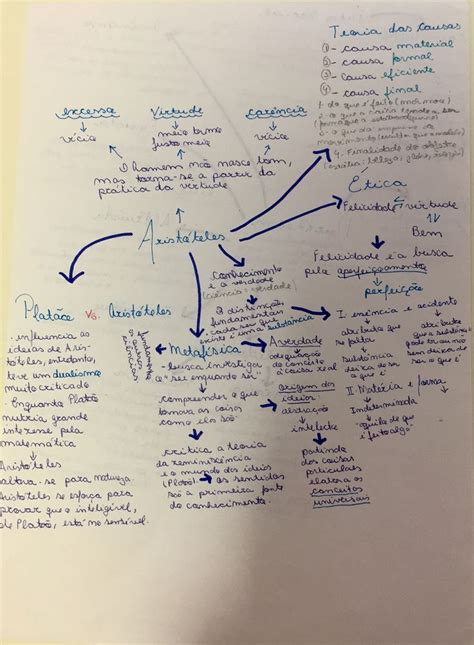 Teoria das Causas
1 - causa material
2 - causa formal
3 - causa eficiente
4 - causa final
1. do que é feito (mármore)
4. Finalidade do objeto
excesso
vício
Virtude
meio termo
justo meio
carência
vício
O homem não nasce bom,
mas torna-se a partir da
prática da virtude
Aristóteles
Ética
Felicidade virtude
Bem
Felicidade é a busca
pela aperfeiçoamento
perfeição
Conhecimento
é a verdade
(ciência = verdade)
3 distinções
fundamentais
cada ser que
existe é uma substância
I: essência e acidente
atributo que
se falta
Substância
deixa de ser
o que é
atributo
que a substância
pode ter ou não
sem deixar de
ser o que é
II: Matéria e forma
Indeterminada
"aquilo de que
é feito algo"
Platão vs. Aristóteles
- influencia as
ideias de Aris-
tóteles, entretanto,
teve um dualismo
muito criticado
Enquanto Platão
nutria grande
interesse pela
matemática
Aristóteles
volta-se para natureza.
Aristóteles se esforça para
provar que o inteligível,
de Platão, está no sensível.
fundamenta
as outras
ciências
Metafísica
- busca investigar
o "ser enquanto ser"
compreender o que
tornava as coisas
como elas são
critica a teoria
da reminiscência
e o mundo das ideias
(Platão). os sentidos
são a primeira fonte
do conhecimento.
A verdade
adequação
do conceito
à coisa real
origem das
ideias
abstração
intelecto
partindo
das coisas
particulares
elabora os
conceitos
universais